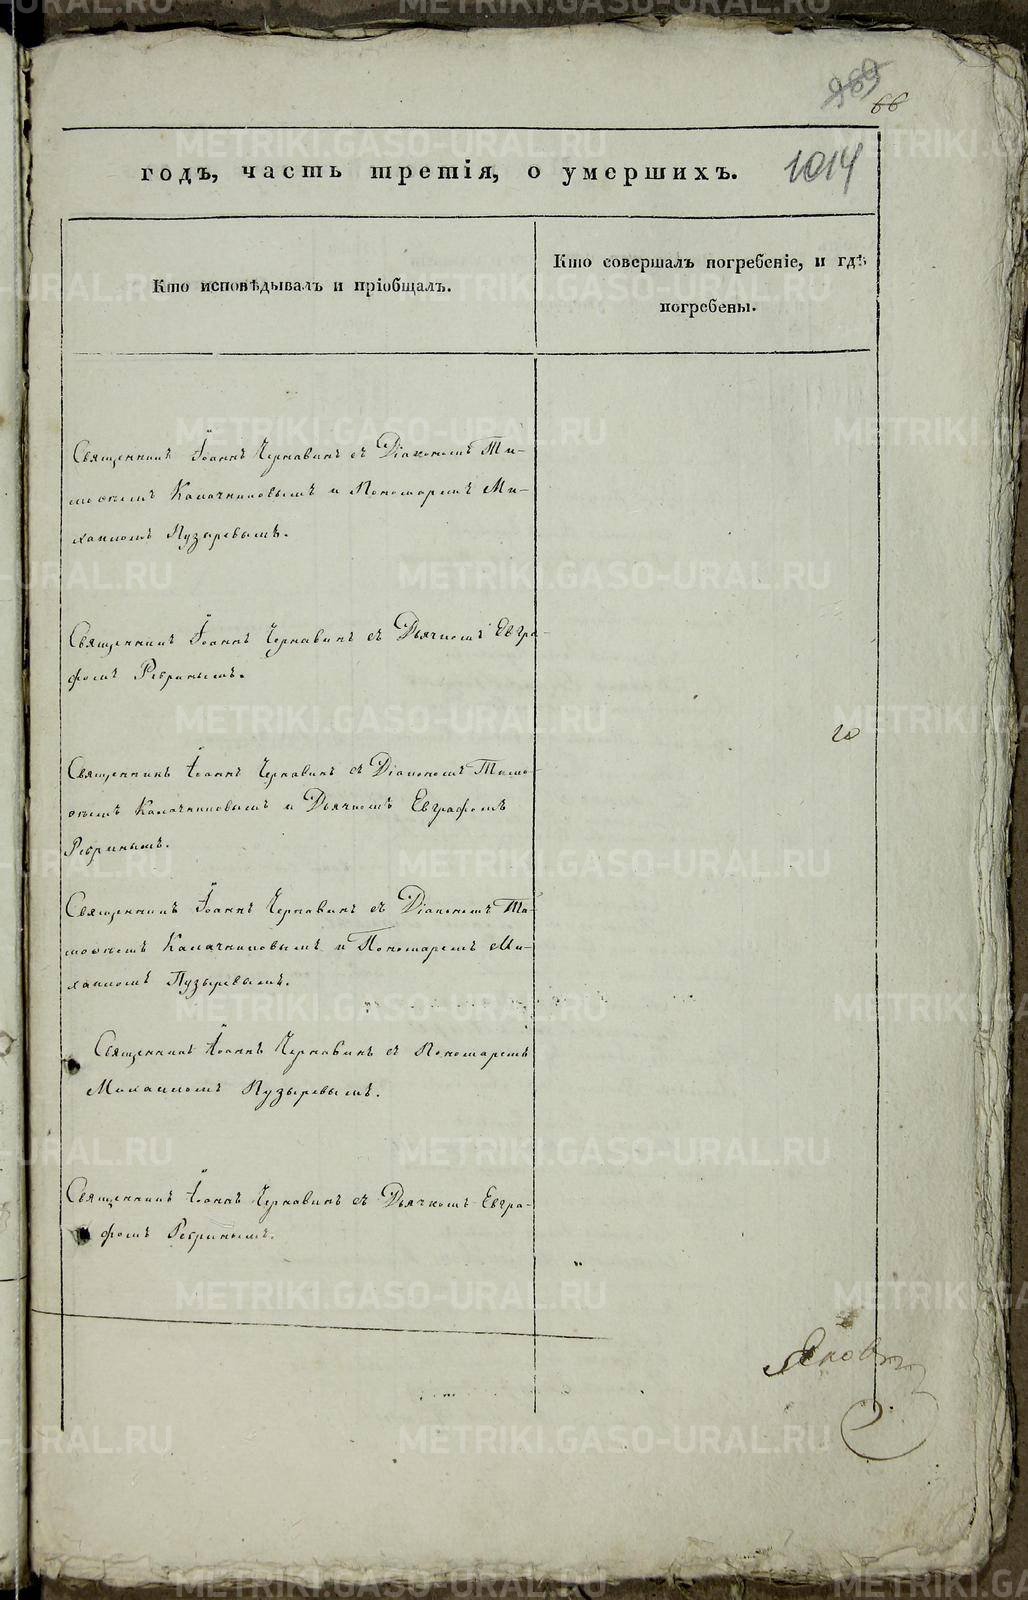 969
66
годъ, часть третія, о умершихъ.
1014
Кто исповѣдывалъ и пріобщалъ.
Кто совершалъ погребеніе, и гдѣ
погребены.
Священникъ Іоаннъ Чернавинъ съ Діакономъ Ти-
моѳеемъ Калачниковымъ и Пономаремъ Ми-
хаиломъ Пузыревымъ.
Священникъ Іоаннъ Чернавинъ съ Дьячкомъ Евгра-
фомъ Ребринымъ.
20
Священникъ Іоаннъ Чернавинъ съ Діакономъ Тимо-
ѳеемъ Калачниковымъ и Дьячкомъ Евграфомъ
Ребринымъ.
Священникъ Іоаннъ Чернавинъ съ Діакономъ Ти-
моѳеемъ Калачниковымъ и Пономаремъ Ми-
хаиломъ Пузыревымъ.
Священникъ Іоаннъ Чернавинъ съ Пономаремъ
Михаиломъ Пузыревымъ.
Священникъ Іоаннъ Чернавинъ съ Дьячкомъ Евгра-
фомъ Ребринымъ.
METRIKI.GASO-URAL.RU